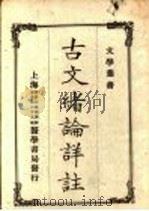 文學叢書
古文緒論詳註
上海醫學書局發行